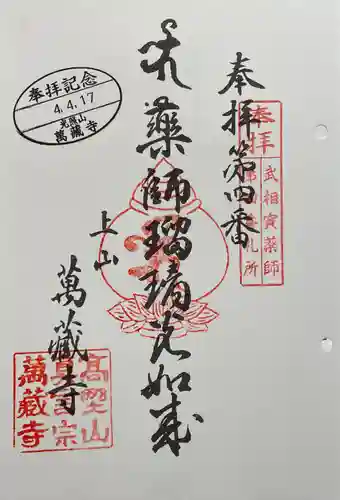 奉拝第四番
奉拝
武相寅薬師
札所
薬師瑠璃光如来
上山
萬蔵寺
奉拝記念
4.4.17
萬蔵寺
高野山
真言宗
萬蔵寺